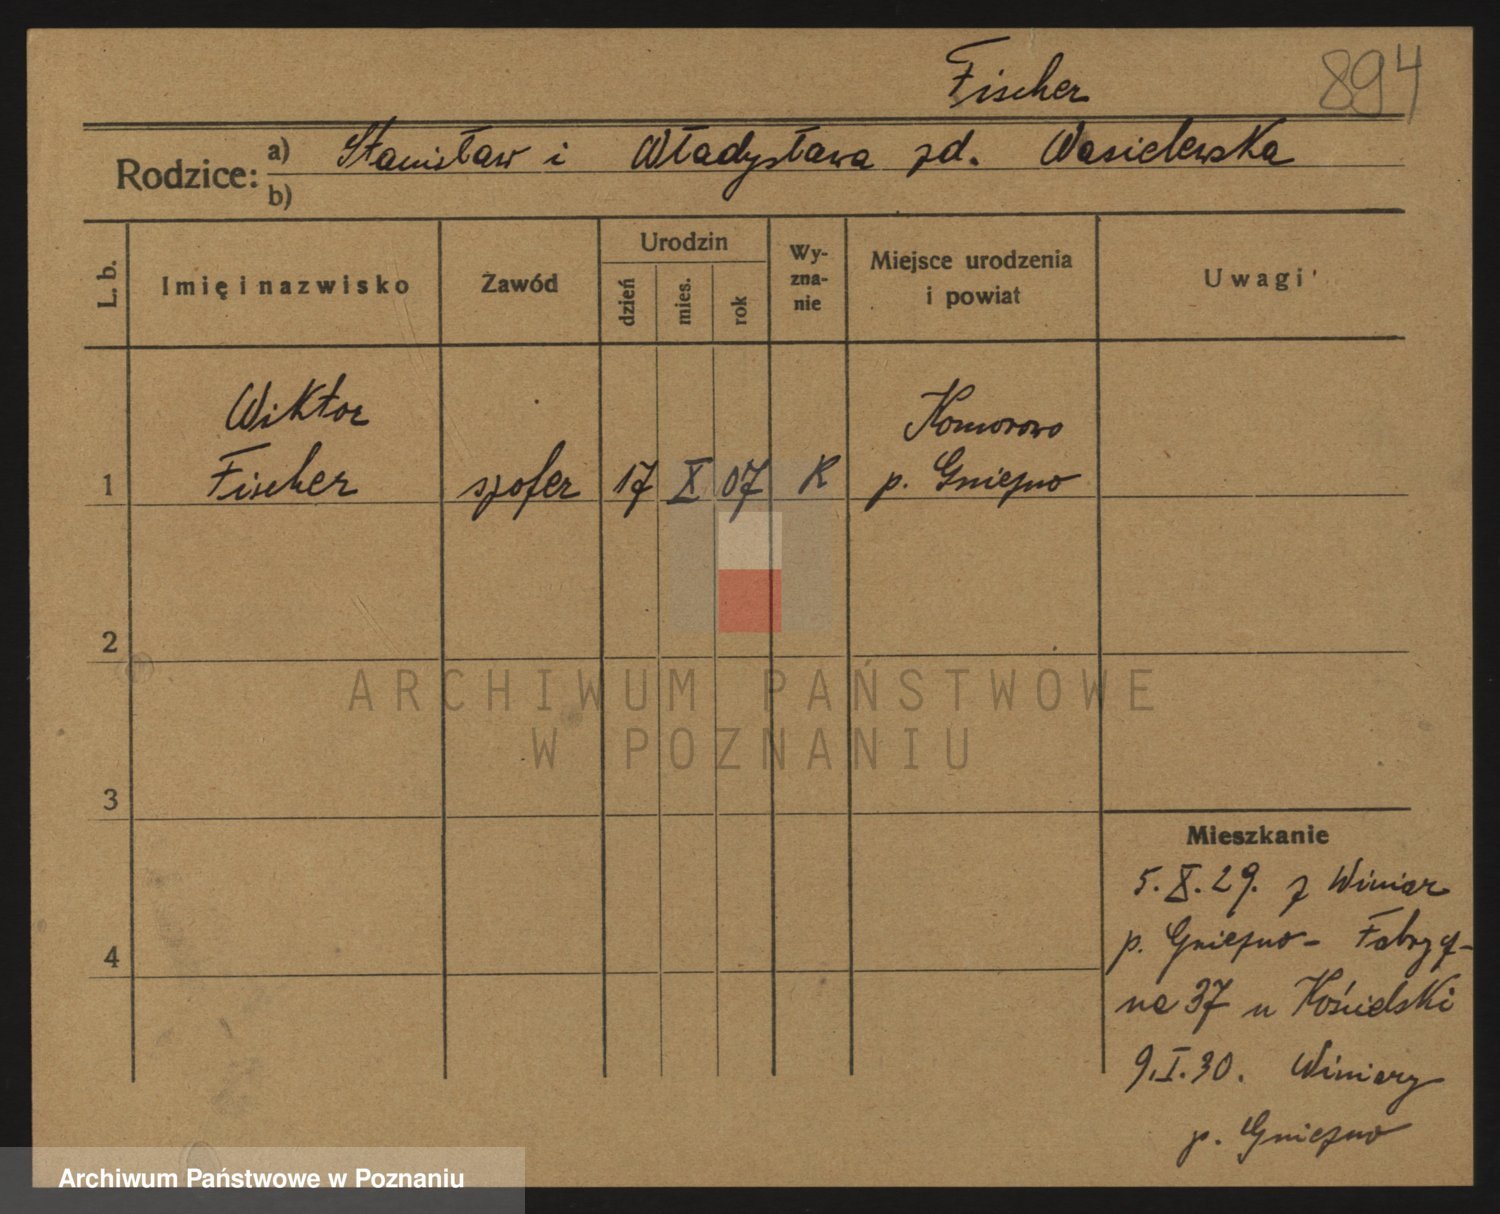 Fischer 894
Rodzice: a) Stanisław i Władysława zd. Wasielewska
b)
L. b. Imię i nazwisko Zawód Urodzin dzień mies. rok Wy-zna-nie Miejsce urodzenia i powiat Uwagi
Wiktor Komorowo
1 Fischer szofer 17 X 07 R p. Gniezno
2
ARCHIWUM PAŃSTWOWE
W POZNANIU
3
Mieszkanie
5.X.29. z Winiar
p. Gniezno - Fabrycz-
na 37 u Kościelski
4
9.I.30. Winiary
p. Gniezno
Archiwum Państwowe w Poznaniu